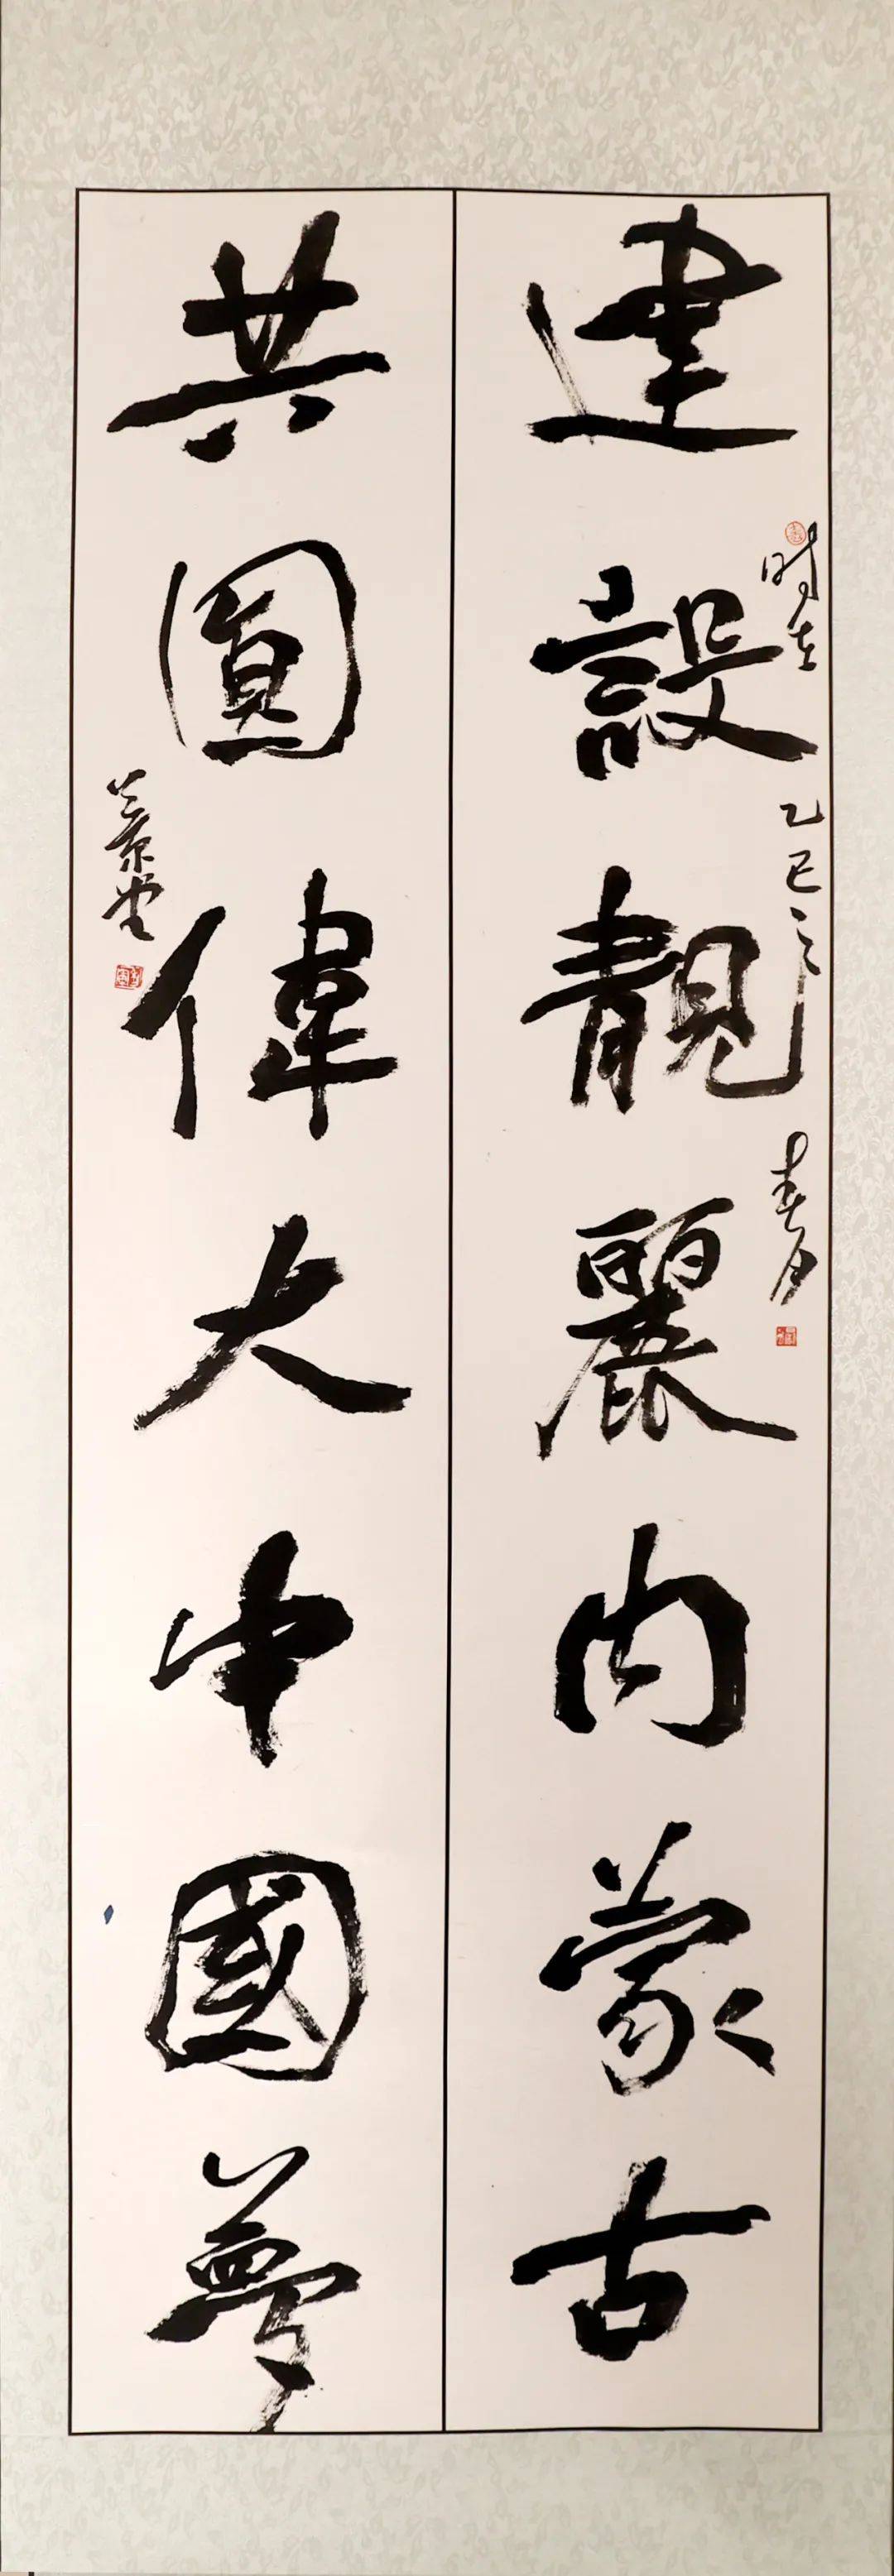 建設靚麗内蒙古
時在乙巳之春月
共圓偉大中國夢